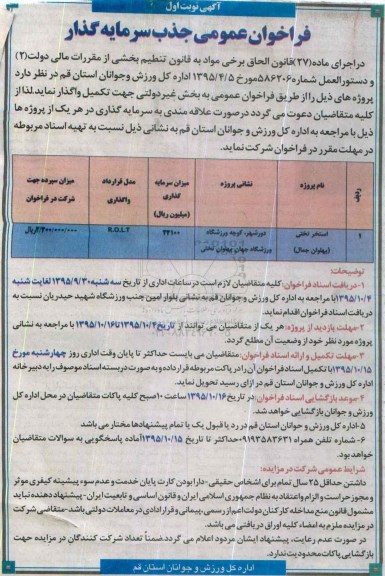 آگهی نوبت اول
فراخوان عمومی جذب سرمایه گذار
دراجرای ماده(۲۷)قانون الحاق برخی مواد به قانون تنظیم بخشی از مقررات مالی دولت(۲)
و دستورالعمل شماره۵۸۶۲۰۶مورخ ۱۳۹۵/۴/۵ اداره کل ورزش وجوانان استان قم در نظر دارد
پروژه های ذیل را از طریق فراخوان عمومی به بخش غیردولتی جهت تکمیل واگذار نماید.لذا از
کلیه متقاضیان دعوت می گردد درصورت علاقه مندی به سرمایه گذاری در هر یک از پروژه ها
ذیل با مراجعه به اداره کل ورزش و جوانان استان قم به نشانی ذیل نسبت به تهیه اسناد مربوطه
در مهلت مقرر در فراخوان شرکت نماید.
ردیف
نام پروژه
نشانی پروژه
میزان سرمایه گذاری (میلیون ریال)
مدل قرارداد واگذاری
میزان سپرده جهت شرکت در فراخوان
۱
استخر تختی (پهلوان جمال)
دورشهر، کوچه ورزشگاه ورزشگاه جهان پهلوان تختی
۲۴۱۰۰
B.O.L.T
۲/۴۰۰/۰۰۰/۰۰۰ریال
توضیحات:
۱-دریافت اسناد فراخوان:کلیه متقاضیان لازم است درساعات اداری از تاریخ سه شنبه۱۳۹۵/۹/۳۰لغایت شنبه
۱۳۹۵/۱۰/۴با مراجعه به اداره کل ورزش و جوانان قم به نشانی بلوار امین جنب ورزشگاه شهید حیدریان نسبت به
دریافت اسناد فراخوان اقدام نماید
۲-مهلت بازدید از پروژه:هر یک از متقاضیان می توانند از تاریخ۱۳۹۵/۱۰/۴تا۱۳۹۵/۱۰/۱۶ با مراجعه به نشانی
پروژه مورد نظر خود از وضعیت آن مطلع گردد.
۳-مهلت تکمیل و ارائه اسناد فراخوان: متقاضیان می بایست حداکثر تا پایان وقت اداری روز چهارشنبه مورخ
۱۳۹۵/۱۰/۱۵با تکمیل اسناد فراخوان آن را در پاکت مربوطه قرار داده و به صورت دربسته اسناد موصوف را به دبیرخانه
اداره کل ورزش و جوانان استان قم در ازای رسید تحویل نماید.
۴-موعد بازگشایی اسناد فراخوان:در تاریخ۱۳۹۵/۱۰/۱۶ ساعت ۱۰صبح کلیه پاکات متقاضیان در محل اداره کل
ورزش و جوانان بازگشایی خواهد شد.
۵-اداره کل ورزش و جوانان استان قم در رد یا قبول یک یا تمام پیشنهادها مختار می باشد
۶-شماره تلفن همراه ۰۹۱۹۳۵۸۳۶۳۱حداکثر تا تاریخ ۱۳۹۵/۱۰/۱۵آماده پاسخگویی به سوالات متقاضیان
خواهد بود.
شرایط عمومی شرکت در مزایده:
داشتن حداقل ۲۵ سال تمام برای اشخاص حقیقی-دارا بودن کارت پایان خدمت و عدم سوء پیشینه کیفری موثر
و مجوز حراست و الزام و اعتقاد به نظام جمهوری اسلامی ایران و قانون اساسی و تابعیت ایران-پیشنهاد دهنده نباید
مشمول قانون منع مداخله کارکنان دولت اعم از رسمی،پیمانی و قراردادی در معاملات دولتی باشد-متقاضی شرکت
در مزایده ملزم به امضاء کلیه اوراق دریافتی می باشد.
در صورت عدم رعایت، پیشنهاد ایشان مردود اعلام می گردد.ضمناً تعداد شرکت کنندگان در مزایده جهت
بازگشایی پاکات محدودیت ندارد.
اداره کل ورزش و جوانان استان قم